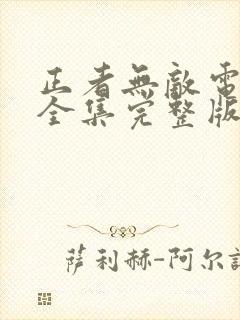 正者無敵電
全集完整版
萨利赫-阿尔